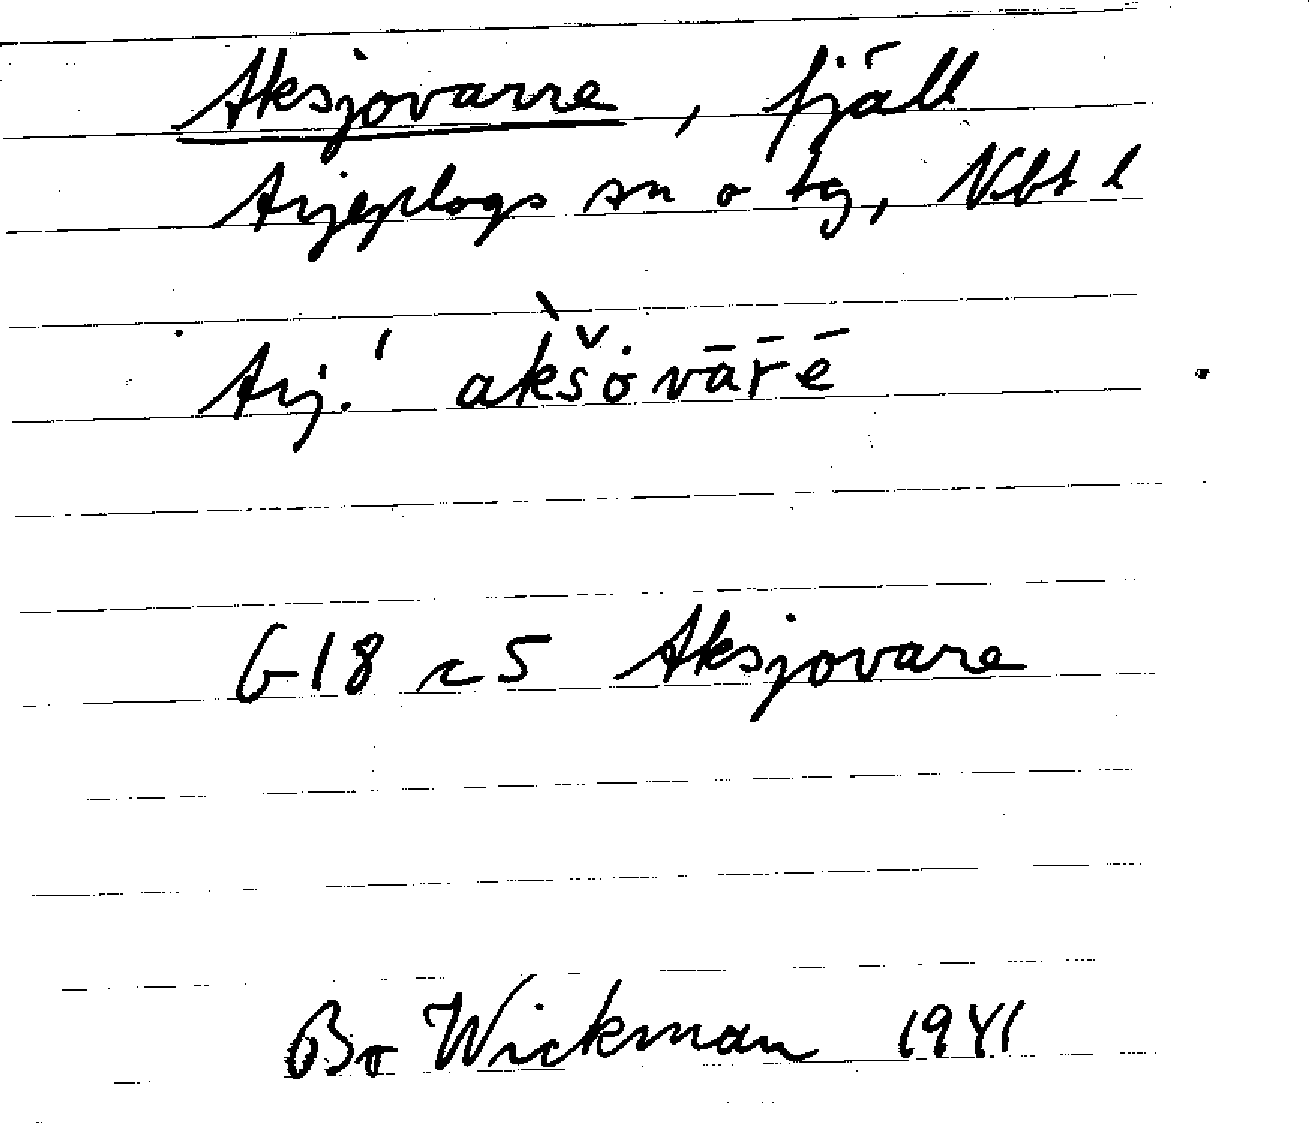 Aksjovarre, fjäll
Arjeplogs sn o tg, Nbt l
Arj.' àkšȯvār̄ē
G18 c5 Aksjovare
Bo Wickman 1941